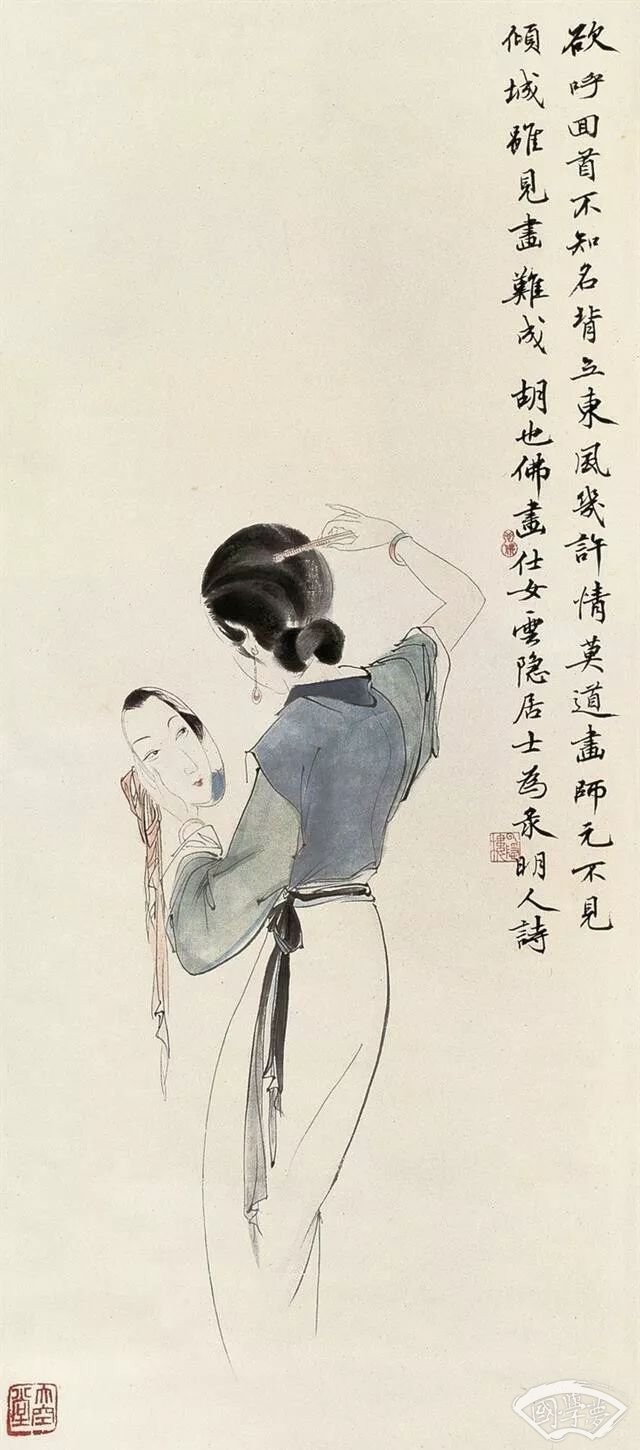 欲呼回首不知名背立東風幾許情莫道畫師元不見
傾城雖見畫難成 胡也佛畫仕女雲隐居士為录明人詩
大空堂
國學夢